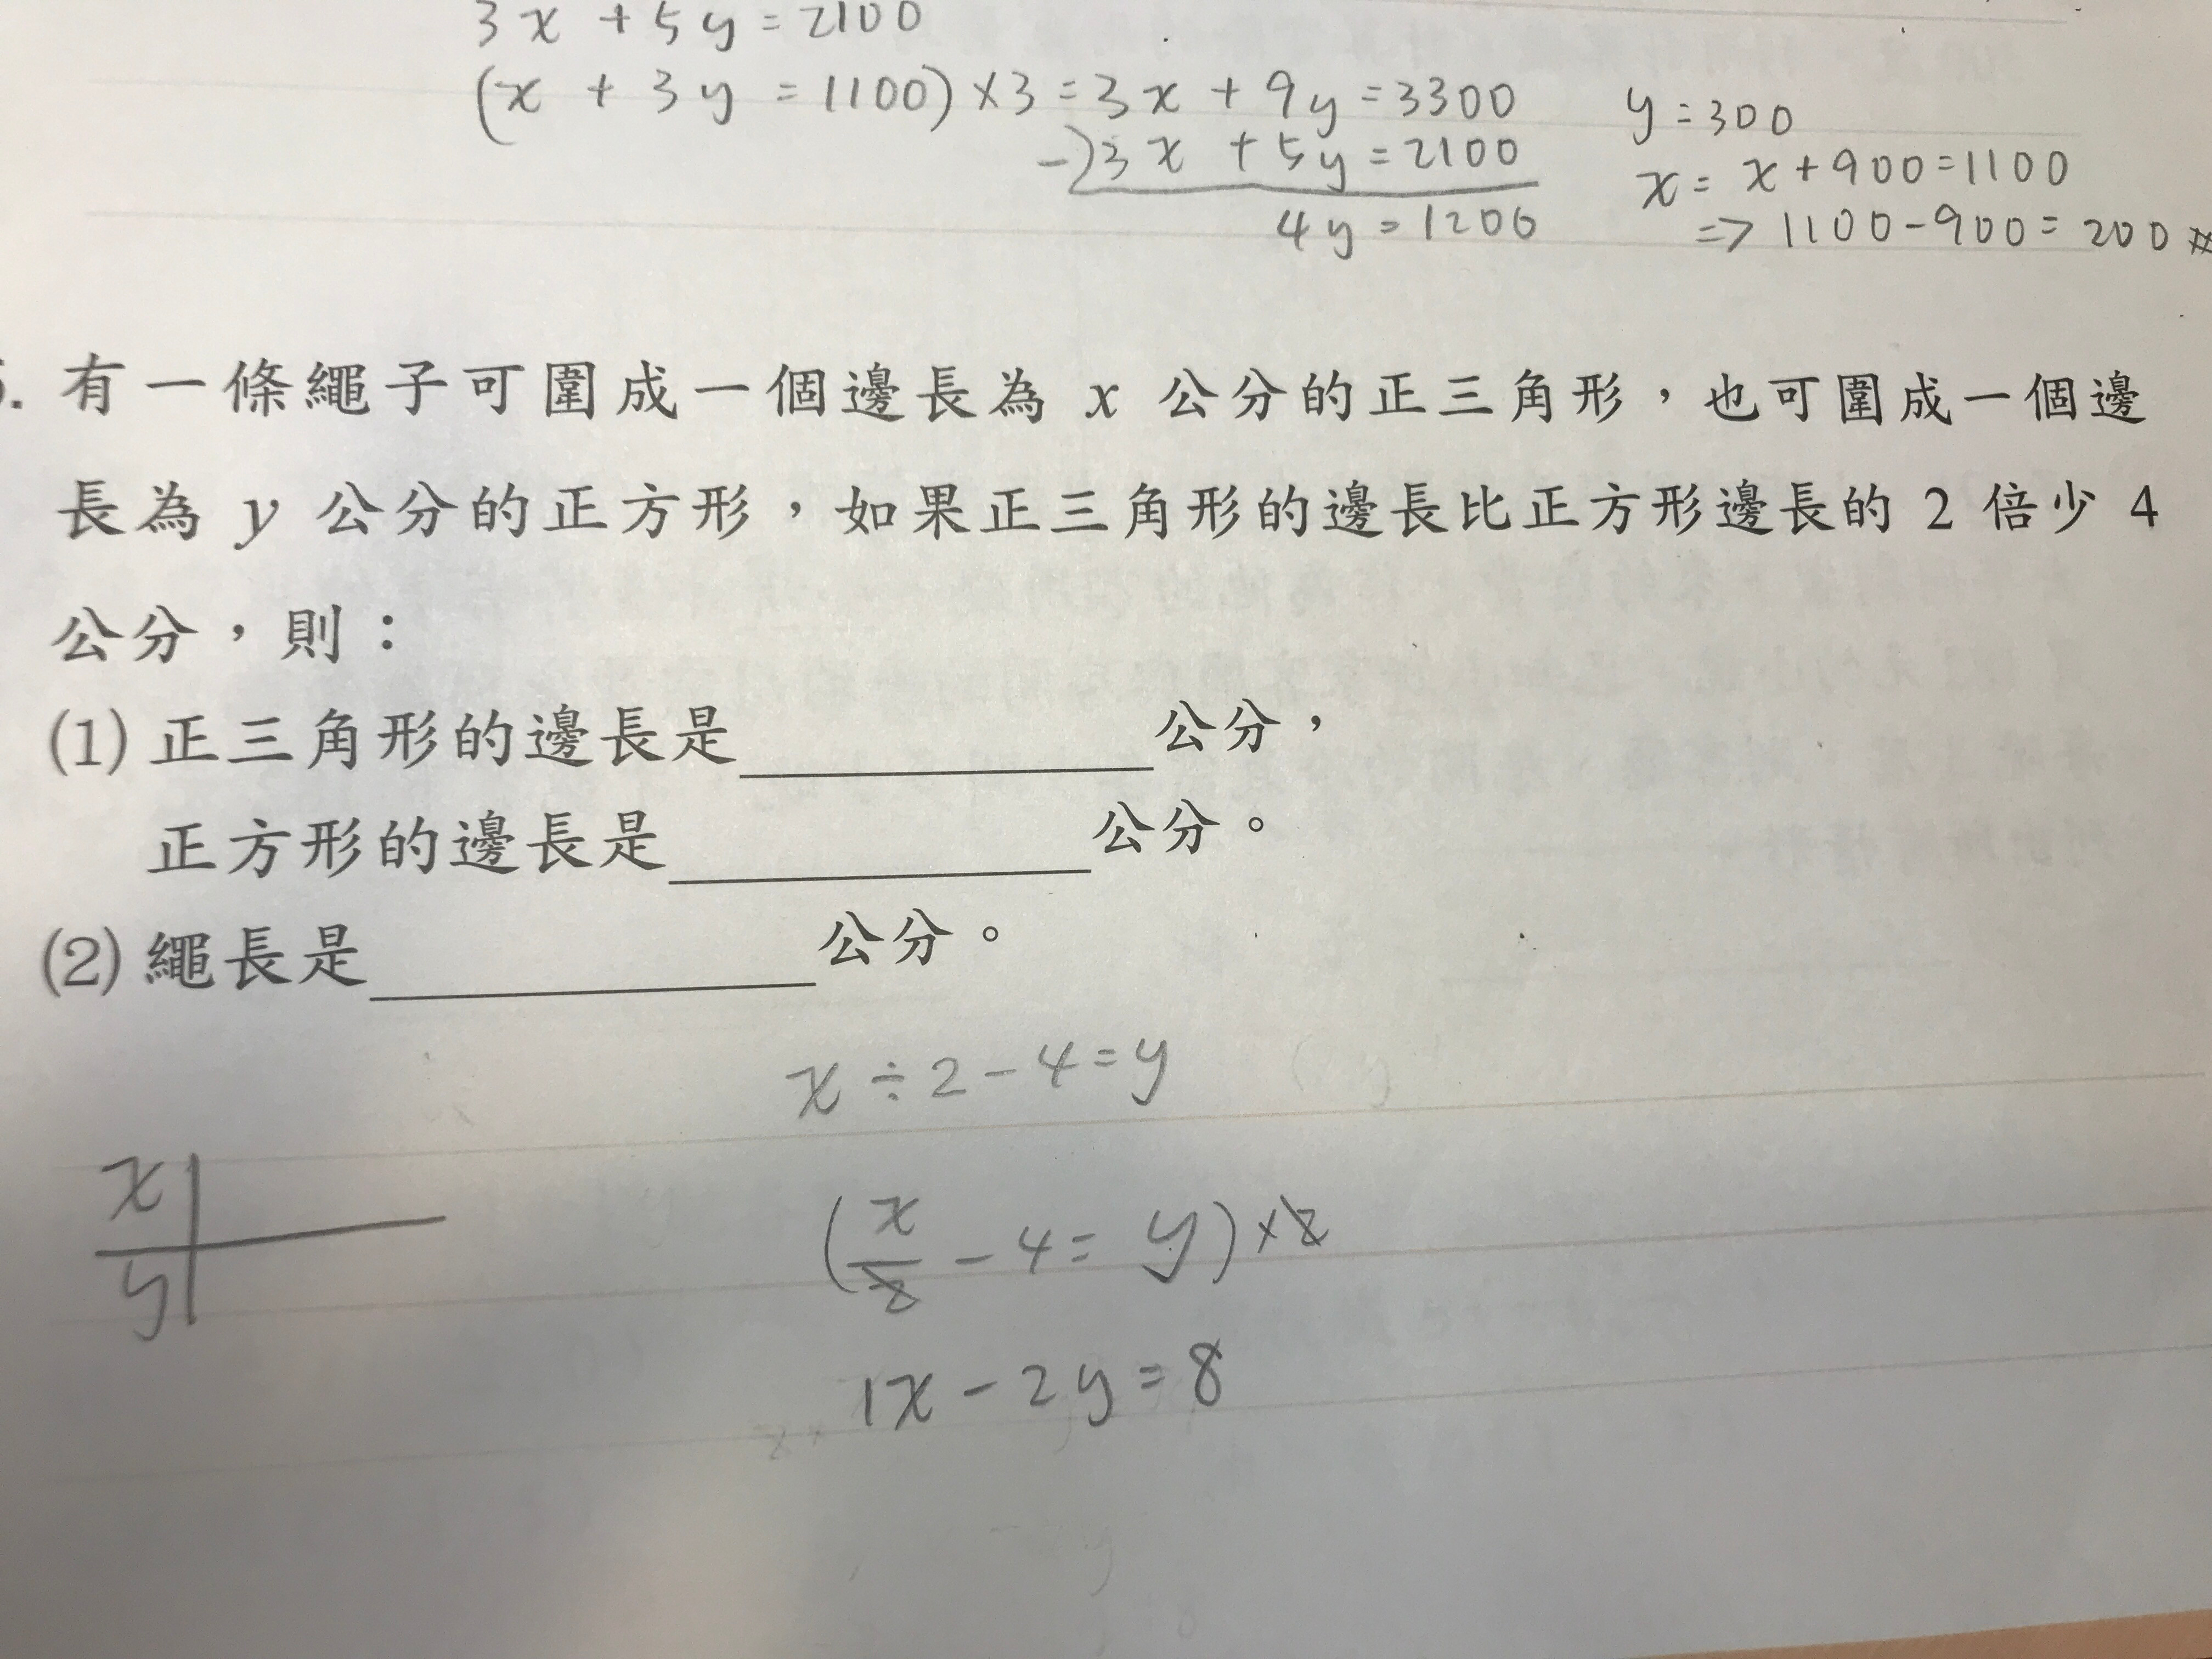 3x + 5y = 2100
(x + 3y = 1100) × 3 = 3x + 9y = 3300
-) 3x + 5y = 2100
4y = 1200
y = 300
x = x + 900 = 1100
=> 1100 - 900 = 200 #
有一條繩子可圍成一個邊長為 x 公分的正三角形，也可圍成一個邊
長為 y 公分的正方形，如果正三角形的邊長比正方形邊長的 2 倍少 4
公分，則：
(1) 正三角形的邊長是＿＿＿＿公分，
正方形的邊長是＿＿＿＿公分。
(2) 繩長是＿＿＿＿公分。
x ÷ 2 - 4 = y
x
y
(x/2 - 4 = y) × 2
1x - 2y = 8